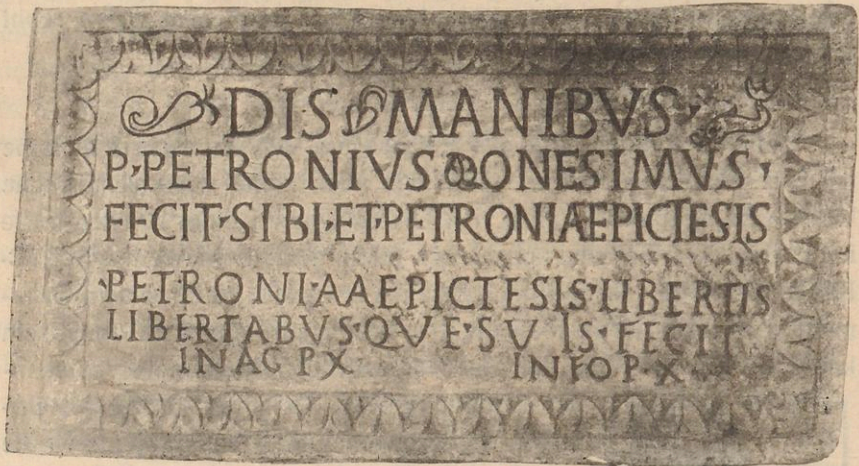 DIS MANIBVS
P·PETRONIVS ONESIMVS
FECIT·SIBI·ET·PETRONIAEEPICTESIS
·PETRONI·AAEPICTESIS·LIBERTIS
LIBERTABVS·QVE·SVIS·FECIT
INAGPX INFOP·X